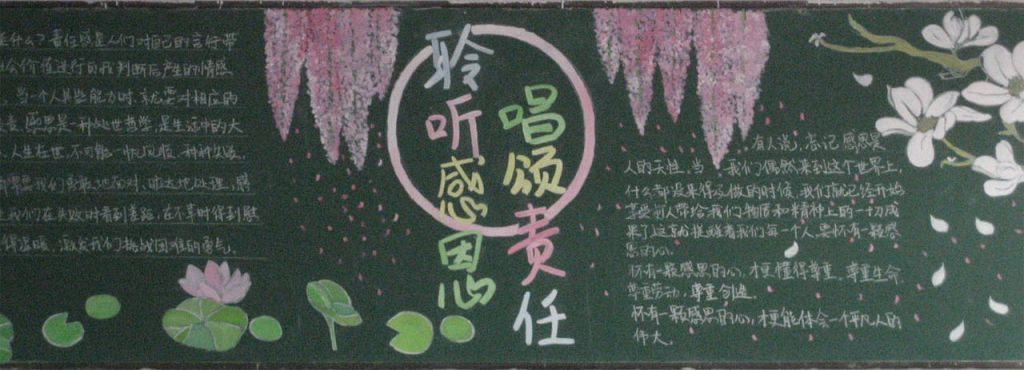 是什么？责任感是人们对自己的言行带
社会价值进行自我判断后产生的情感
，当一个人具些能力时，就要对相应的
负责。感恩是一种处世哲学，是生活中的大
人生在世，不可能一帆风顺，种种失败、
都需要我们勇敢地面对，旷达地处理，感
让我们在失败时看到差距，在不幸时得到慰
得温暖，激发我们挑战困难的勇气，
聆听感恩
唱颂责任
有人说，忘记感恩是
人的天性，当我们偶然来到这个世界上，
什么都还没来得及做的时候，我们就已经开始
享受前人带给我们物质和精神上的一切成
果了，这就提醒着我们每一个人要怀有一颗感
恩的心。
怀有一颗感恩的心，才更懂得尊重，尊重生命
尊重劳动，尊重创造。
怀有一颗感恩的心，才更能体会一个平凡人的
伟大。